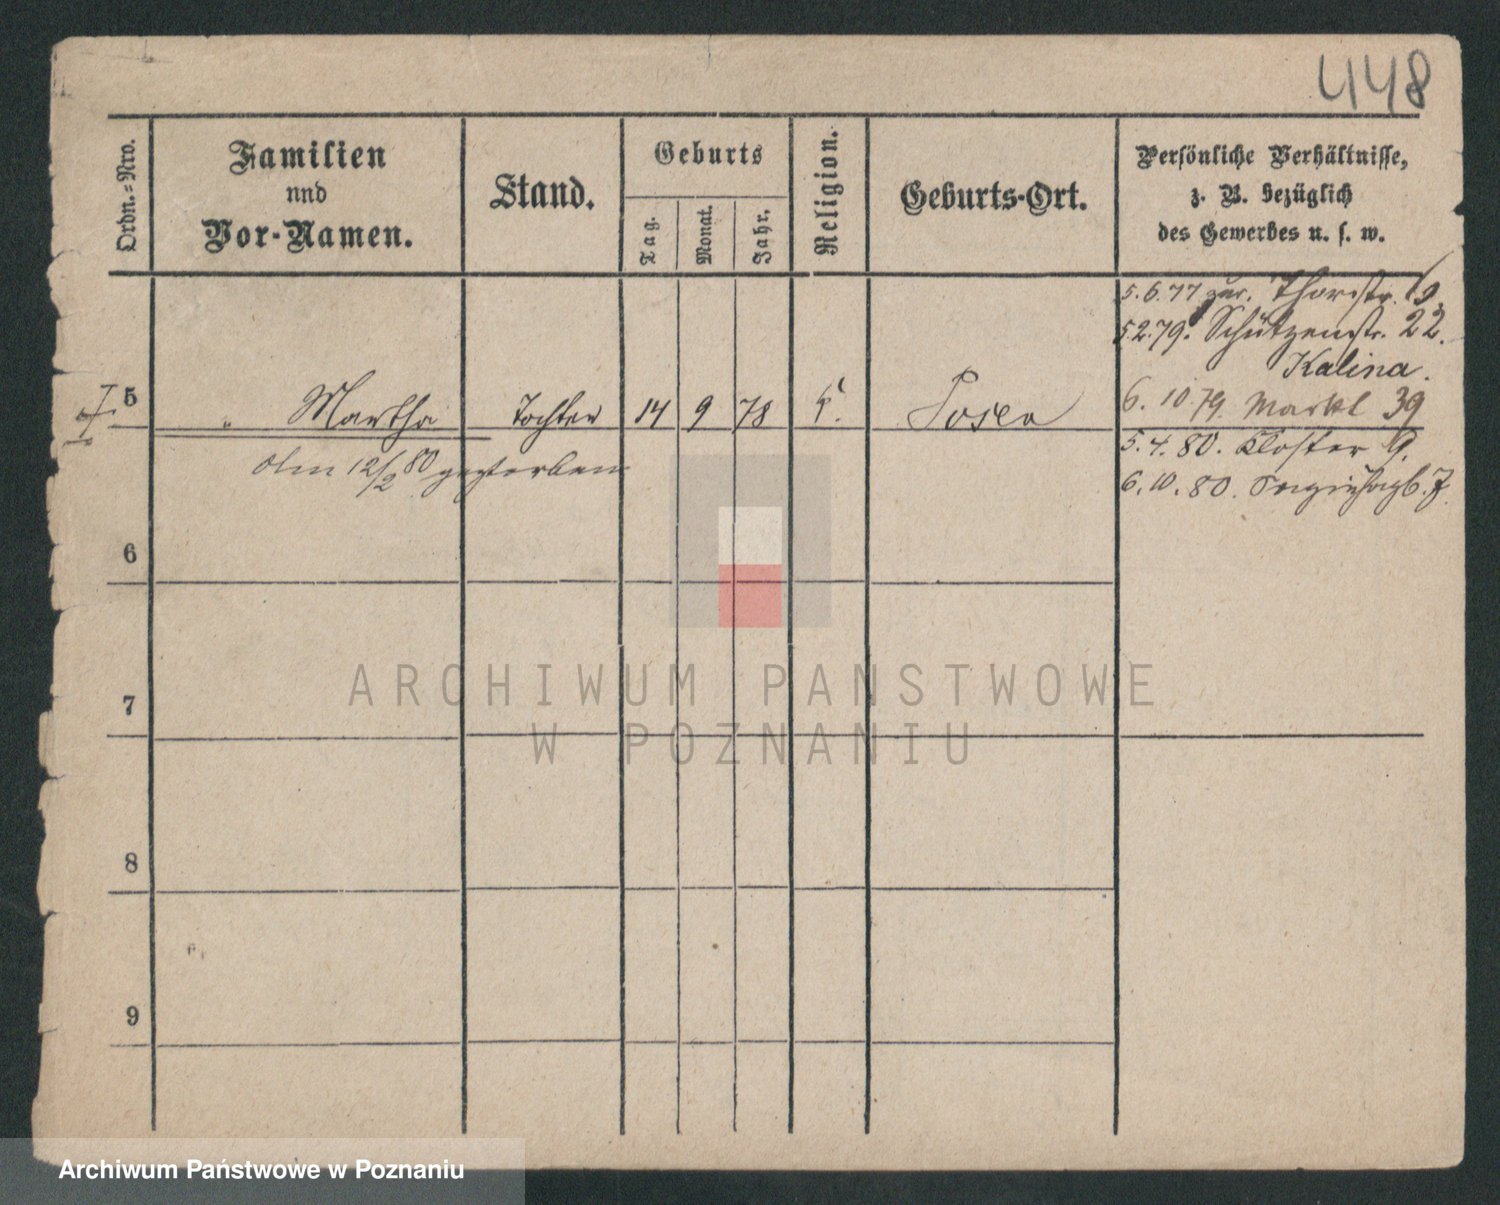 448
Ordn.=Nro.
Familien
und
Vor-Namen.
Stand.
Geburts
Tag.
Monat.
Jahr.
Religion.
Geburts-Ort.
Persönliche Verhältnisse,
z. B. bezüglich
des Gewerbes u. s. w.
5.6.77 zur. Thorstr.
5.2.79. Schützenstr. 22.
Kalina.
6. 10 79. Markt 39
5 " Martha Tochter 14 9 78 Posen
5. 4. 80. Kloster 9.
am 12/2 80 gestorben
6. 10. 80.
6
7
8
9
ARCHIWUM PAŃSTWOWE
W POZNANIU
Archiwum Państwowe w Poznaniu